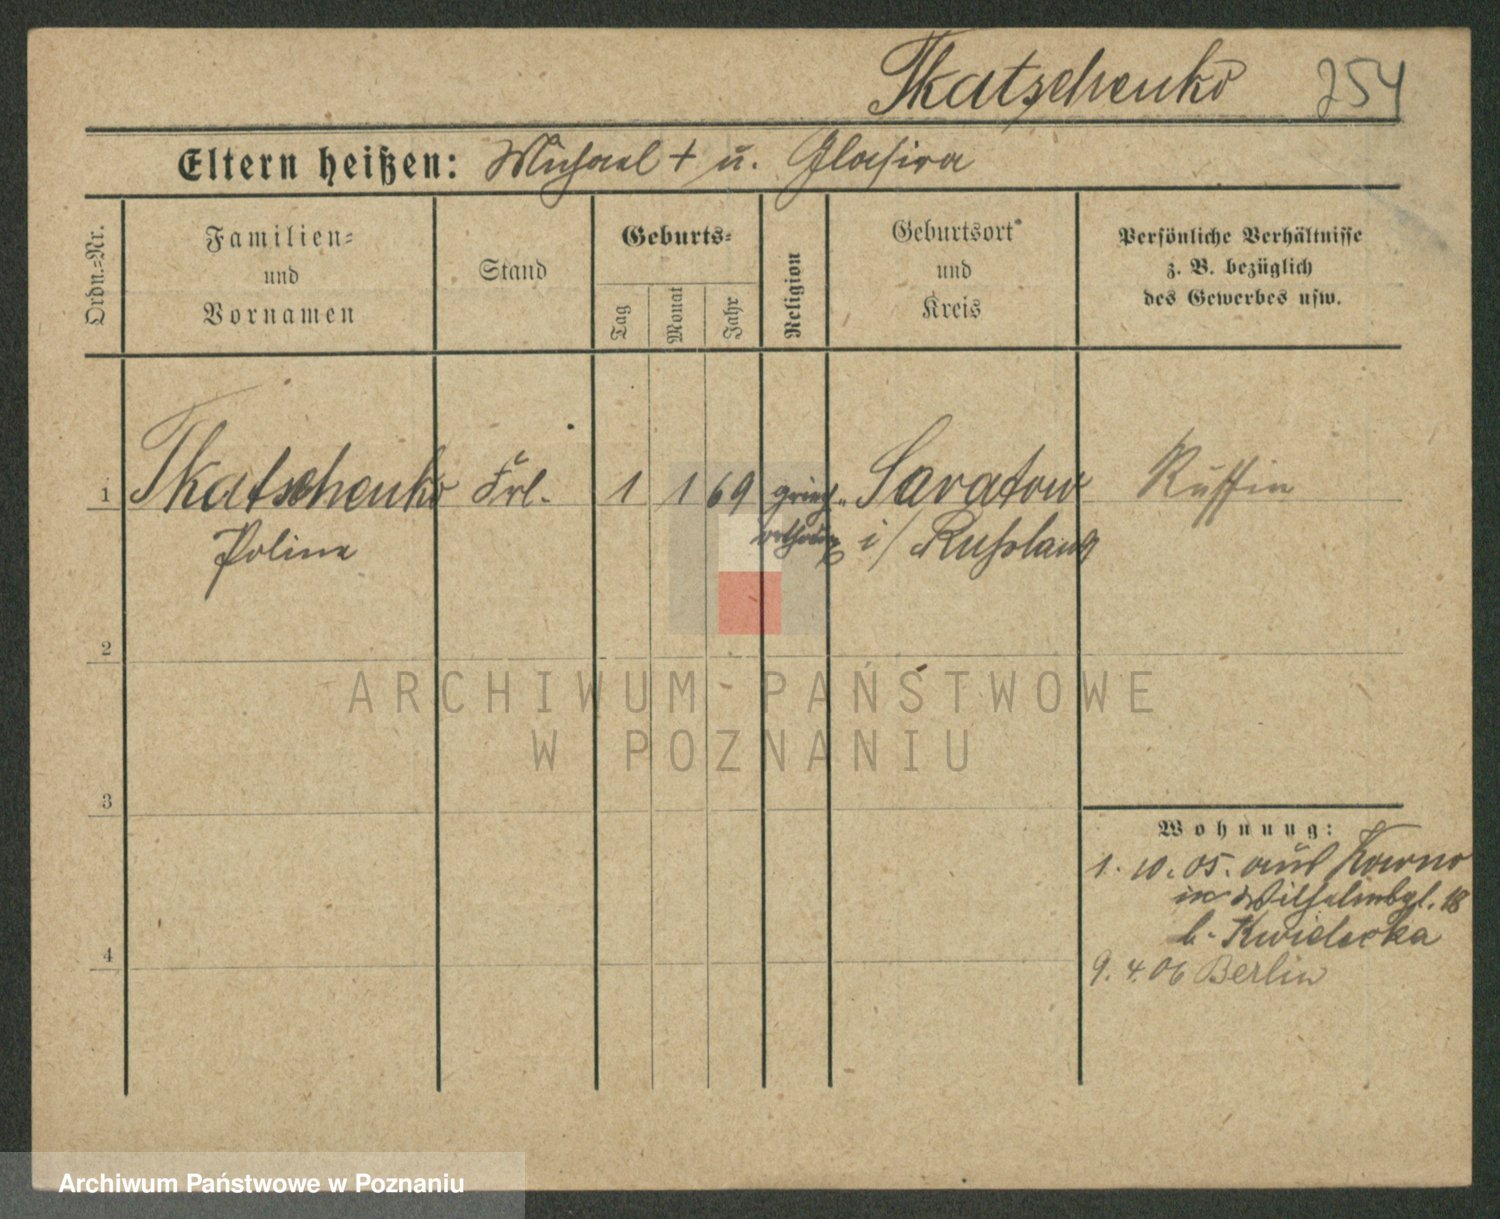 Tkatschenko 254
Eltern heißen: Michael + u. Glafira
Ordn.-Nr.
Familien-
und
Vornamen
Stand
Geburts-
Tag
Monat
Jahr
Religion
Geburtsort
und
Kreis
Persönliche Verhältnisse
z. B. bezüglich
des Gewerbes usw.
1 Tkatschenko Frl. 1 1 69 griech. Saratow Russin
Poline orthodox i/ Russland
2
3
4
Wohnung:
1. 10. 05. aus Kowno
in Wilhelmspl. 18
b. Kwielecka
9. 4. 06 Berlin
ARCHIWUM PAŃSTWOWE
W POZNANIU
Archiwum Państwowe w Poznaniu